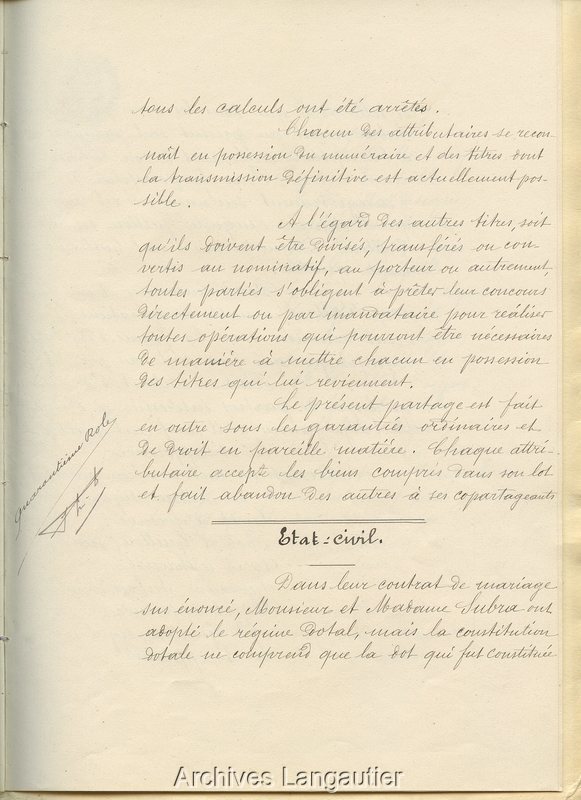 tous les calculs ont été arrêtés.
Chacun des attributaires se recon-
naît en possession du numéraire et des titres dont
la transmission définitive est actuellement pos-
sible.
A l'égard des autres titres, soit
qu'ils doivent être divisés, transférés ou con-
vertis au nominatif, au porteur ou autrement
toutes parties s'obligent à prêter leur concours
directement ou par mandataire pour réaliser
toutes opérations qui pourront être nécessaires
de manière à mettre chacun en possession
des titres qui lui reviennent.
Le présent partage est fait
en outre sous les garanties ordinaires et
de droit en pareille matière. Chaque attri-
butaire accepte les biens compris dans son lot
et fait abandon des autres à ses copartageants
Quarantième Role
Etat-civil.
Dans leur contrat de mariage
sus énoncé, Monsieur et Madame Subra ont
adopté le régime dotal, mais la constitution
dotale ne comprend que la dot qui fut constituée
Archives Langautier